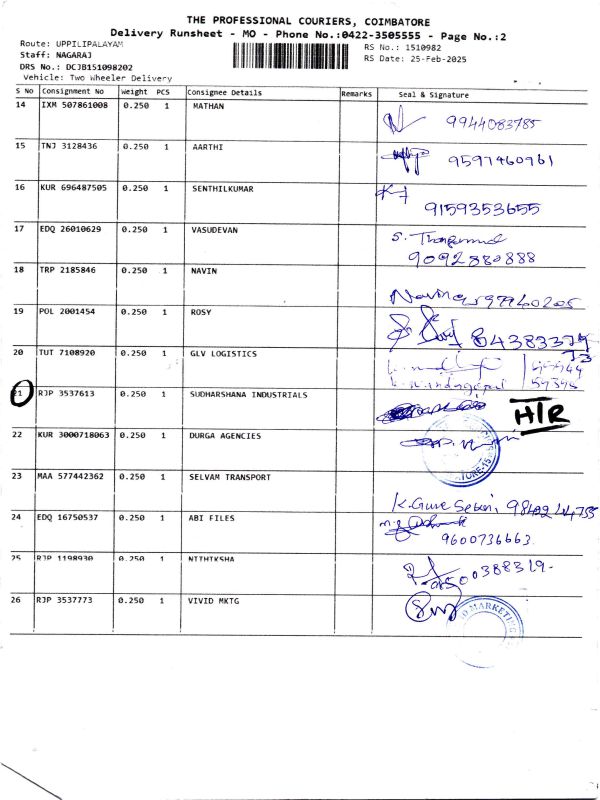 THE PROFESSIONAL COURIERS, COIMBATORE
Delivery Runsheet - MO - Phone No.:0422-3505555 - Page No.:2
Route: UPPILIPALAYAM
RS No.: 1510982
Staff: NAGARAJ
RS Date: 25-Feb-2025
DRS No.: DCJB151098202
Vehicle: Two Wheeler Delivery
S No Consignment No Weight PCS Consignee Details Remarks Seal & Signature
14 IXM 507861008 0.250 1 MATHAN
9944083785
15 TNJ 3128436 0.250 1 AARTHI
9597460961
16 KUR 696487505 0.250 1 SENTHILKUMAR
9159353655
17 EDQ 26010629 0.250 1 VASUDEVAN
9092880888
18 TRP 2185846 0.250 1 NAVIN
Navin
19 POL 2001454 0.250 1 ROSY
20 TUT 7108920 0.250 1 GLV LOGISTICS
21 RJP 3537613 0.250 1 SUDHARSHANA INDUSTRIALS
H/R
22 KUR 3000718063 0.250 1 DURGA AGENCIES
23 MAA 577442362 0.250 1 SELVAM TRANSPORT
24 EDQ 16750537 0.250 1 ABI FILES
9600736663
25 RJP 1198930 0.250 1 NITHIKSHA
26 RJP 3537773 0.250 1 VIVID MKTG
MARKETING